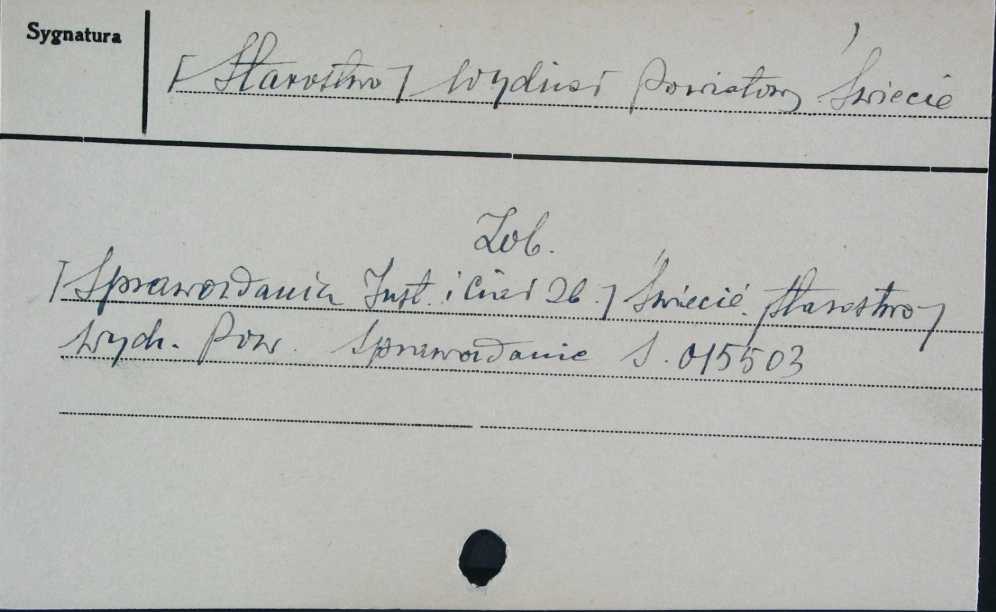 Sygnatura
[Starostwo] Wydział Powiatowy Świecie
Zob.
[Sprawozdania Inst. i 26.] Świecie. Starostwo]
Wydz. Pow. Sprawozdanie S. 015503